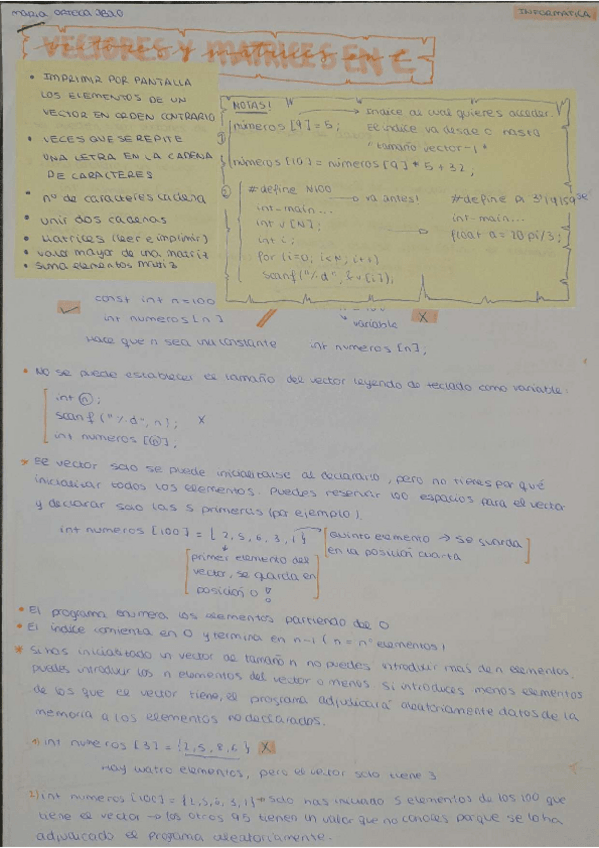 INFORMATICA
VECTORES Y MATRICES EN C
• IMPRIMIR POR PANTALLA
LOS ELEMENTOS DE UN
VECTOR EN ORDEN CONTRARIO
• VECES QUE SE REPITE
UNA LETRA EN LA CADENA
DE CARACTERES
• nº de caracteres cadena
• unir dos cadenas
• Matrices (leer e imprimir)
• valor mayor de una matriz
• suma elementos matriz
NOTAS!
① números [9] = 5;
índice al cual quieres acceder
el índice va desde 0 hasta
"tamaño vector-1"
números [10] = números [9] * 5 + 32;
② #define N 100
int-main...
int v [N];
int i;
for (i=0; i<N; i++)
scanf("%d", &v[i]);
va antes!
#define Pi 3'14159
int-main...
float a = 20 pi/3;
const int n=100
int numeros [n]
Hace que n sea una constante
variable
X
int numeros [n];
• No se puede establecer el tamaño del vector leyendo de teclado como variable:
int n;
scanf ("%d", n); X
int numeros [n];
El vector solo se puede inicializarse al declararlo, pero no tienes por qué
inicializar todos los elementos. Puedes reservar 100 espacios para el vector
y declarar solo los 5 primeros (por ejemplo).
int numeros [100] = { 2, 5, 6, 3, 1}
quinto elemento → se guarda
en la posición cuarta
primer elemento del
vector, se guarda en
posición 0 !
• El programa enumera los elementos partiendo del 0
• El índice comienza en 0 y termina en n-1 (n = nº elementos)
* Si has inicializado un vector de tamaño n no puedes introducir más de n elementos.
puedes introducir los n elementos del vector o menos. Si introduces menos elementos
de los que el vector tiene, el programa adjudicará aleatoriamente datos de la
memoria a los elementos no declarados.
1) int numeros [3] = {2, 5, 8, 6} X
Hay cuatro elementos, pero el vector solo tiene 3
2) int numeros [100] = {2, 5, 6, 3, 1} → Solo has iniciado 5 elementos de los 100 que
tiene el vector → los otros 95 tienen un valor que no conoces porque se lo ha
adjudicado el programa aleatoriamente.